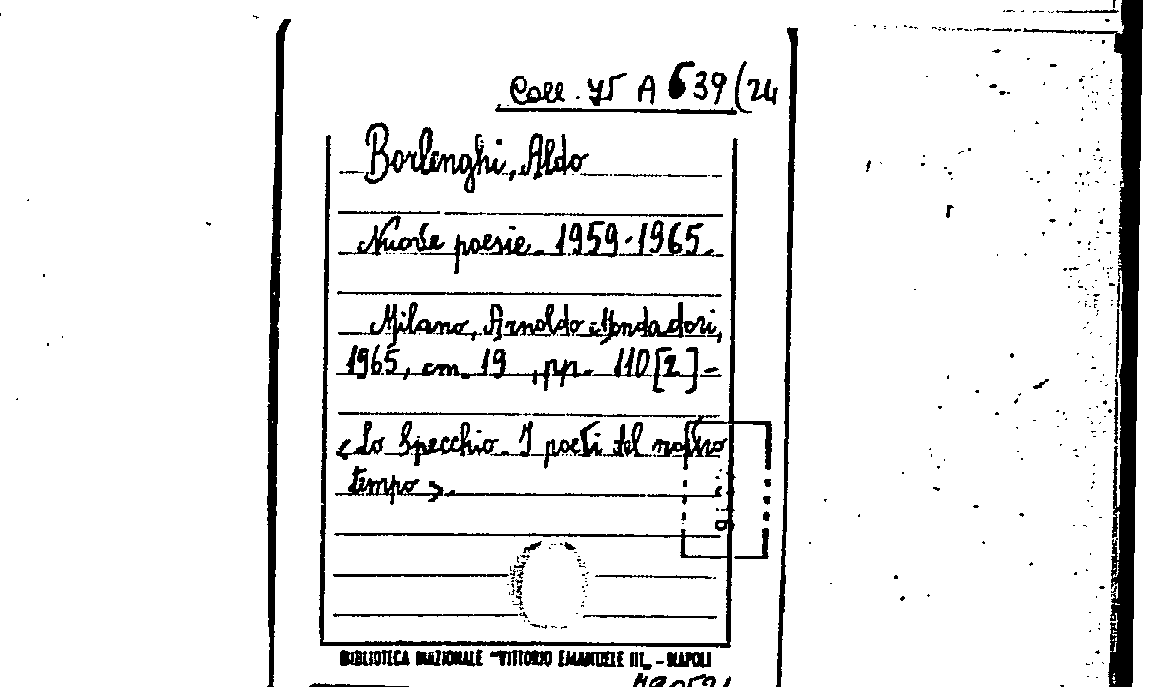 Coll. 75 A 639 (24
Borlenghi, Aldo
Nuove poesie. 1959-1965.
Milano, Arnoldo Mondadori,
1965, cm. 19, pp. 110 [2] -
<Lo Specchio. I poeti del nostro
tempo>.
BIBLIOTECA NAZIONALE "VITTORIO EMANUELE III" - NAPOLI